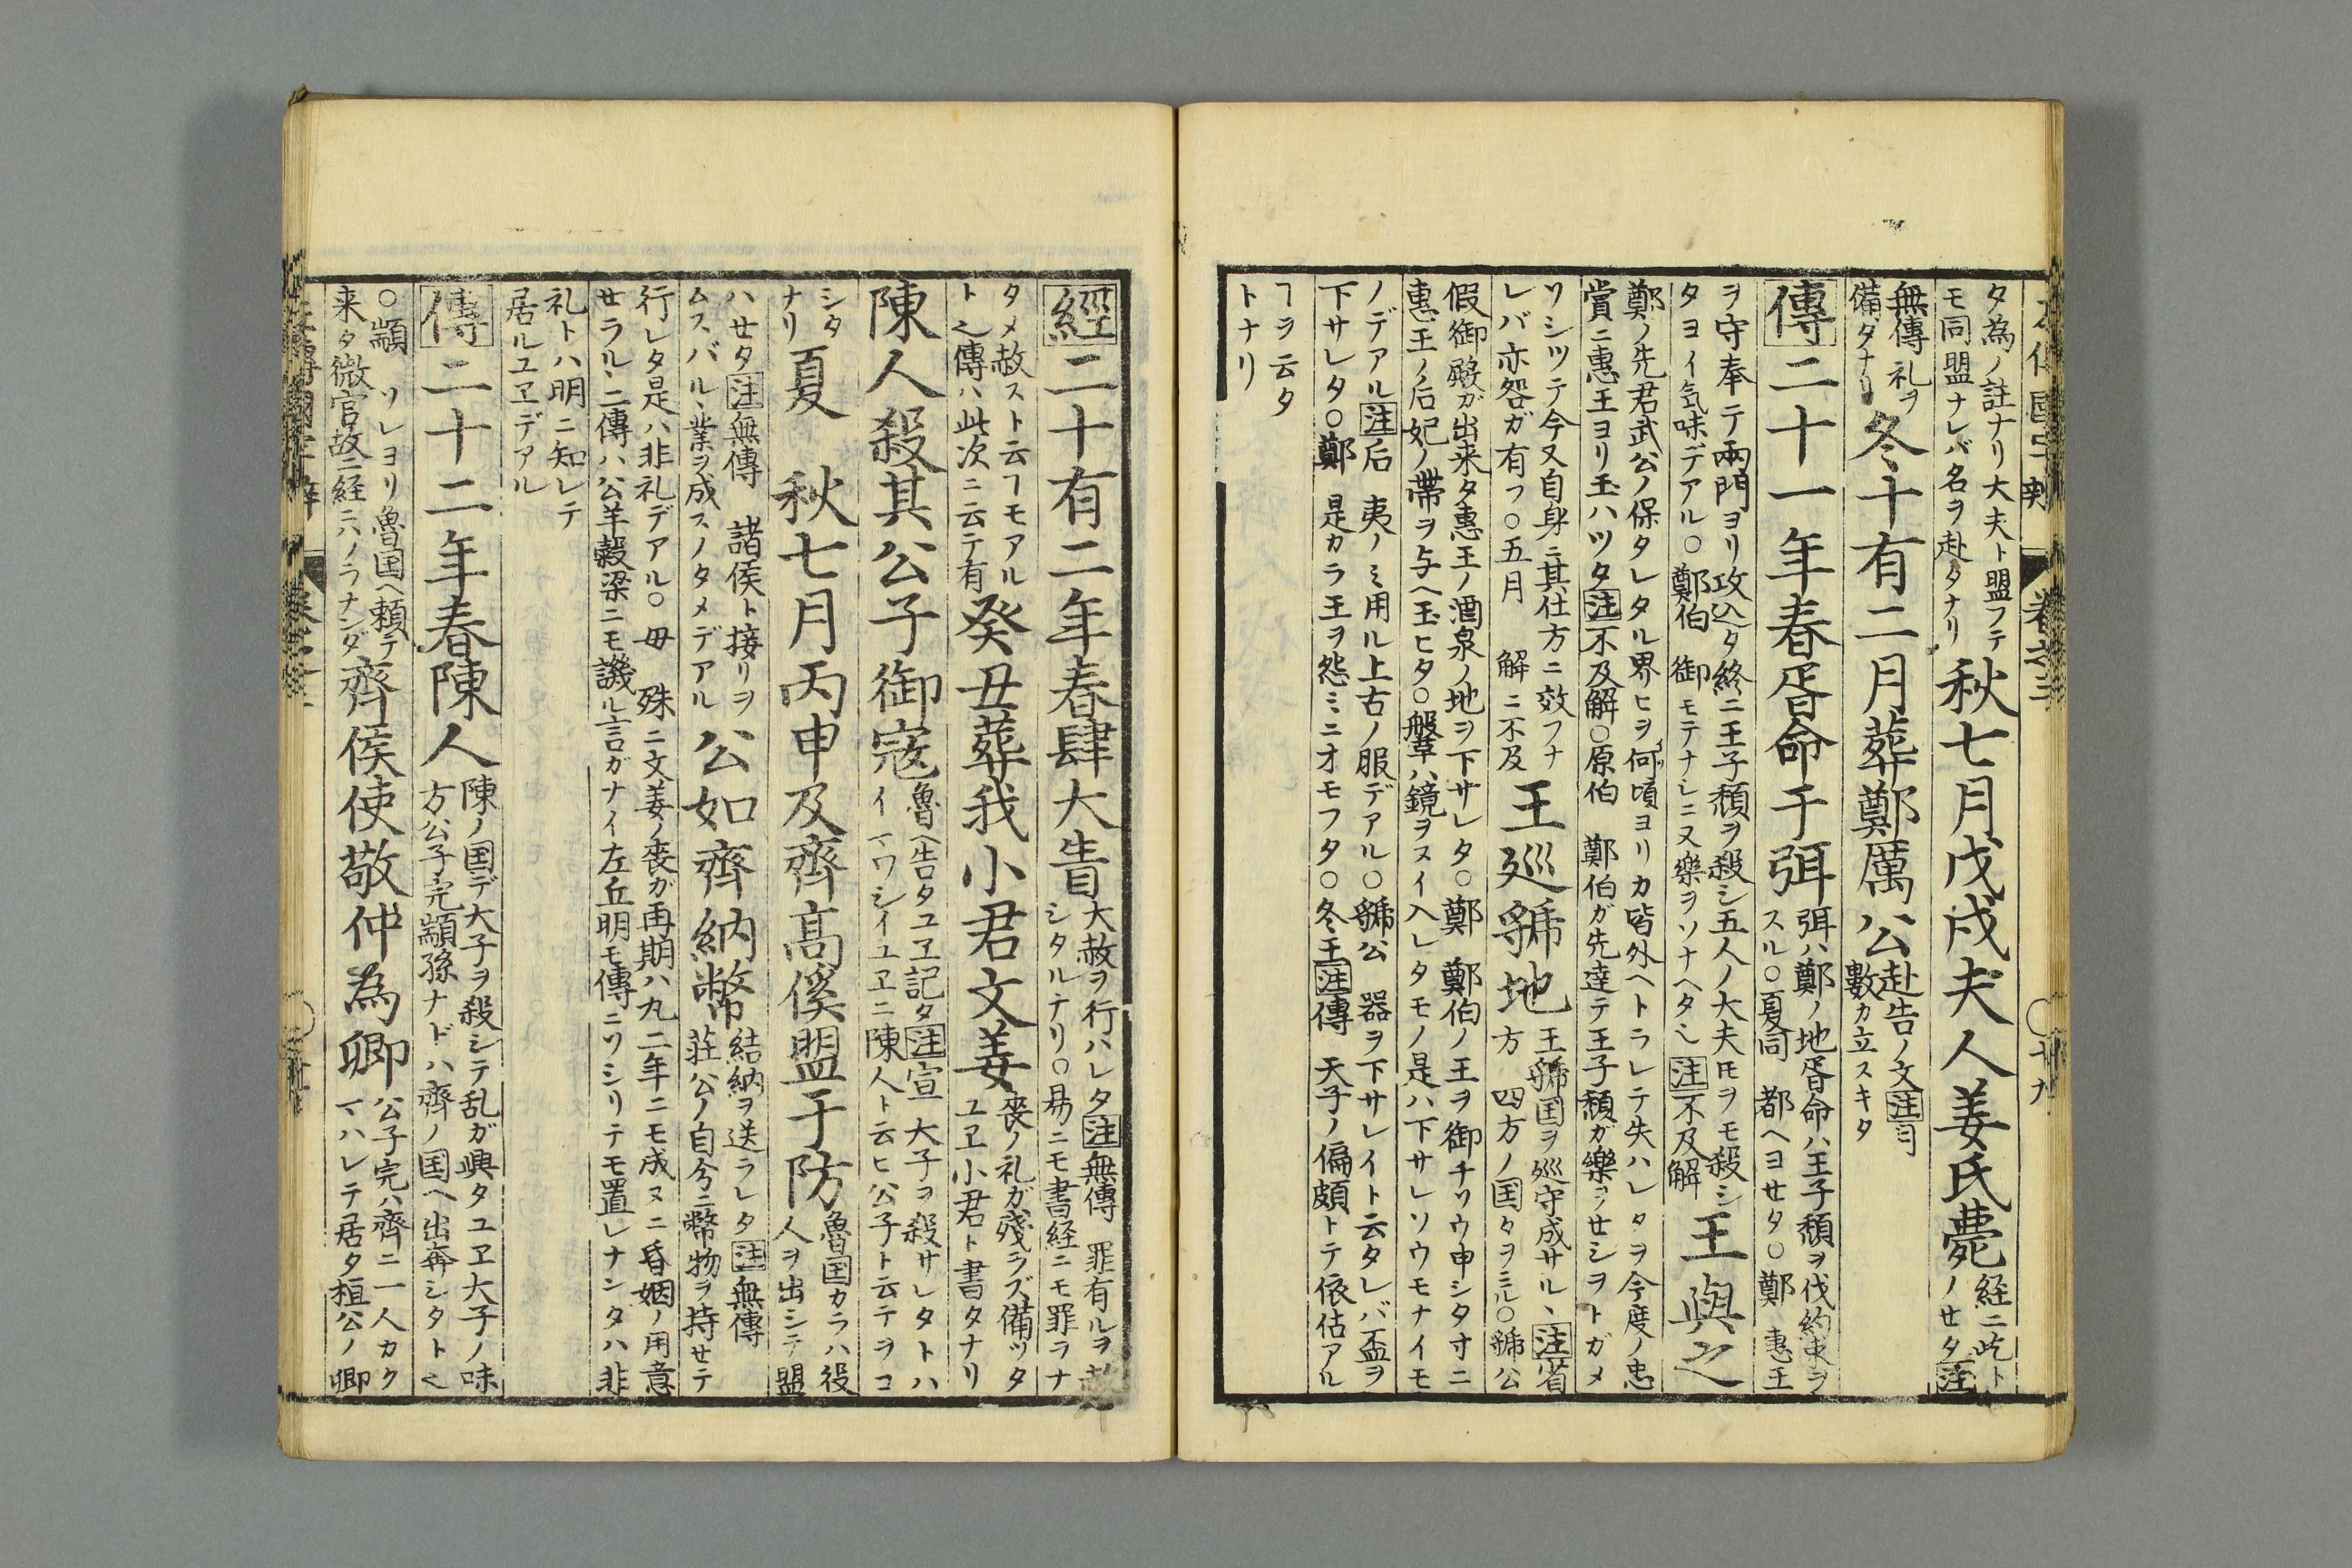 タ為ノ註ナリ大夫ト盟フテ
モ同盟ナレバ名ヲ赴タナリ
秋七月戊戌夫人姜氏薨
経ニ此ト
ノセタ注
無傳礼ヲ
備タナリ
冬十有二月葬鄭厲公
赴告ノ文注
數カ立スキタ
傳二十一年春胥命于弭
弭ハ鄭ノ地胥命ハ王子頽ヲ伐約束ヲ
スル○夏同 都ヘヨセタ○鄭 惠王
ヲ守奉テ兩門ヨリ攻込タ終ニ王子頽ヲ殺シ五人ノ大夫𪜈ヲモ殺シ
タヨイ気味デアル○鄭伯 御モテナシニ又樂ヲソナヘタ〆 注不及解
王與之
鄭ノ先君武公ノ保タレタル界ヒヲ何頃ヨリカ皆外ヘトラレテ失ハレタヲ今度ノ忠
賞ニ惠王ヨリ玉ハツタ注不及解○原伯 鄭伯ガ先達テ王子頽ガ樂ヲセシヲトガメ
ソシツテ今又自身ニ其仕方ニ效フナ
レバ亦咎ガ有フ○五月 解ニ不及
王巡虢地
王虢国ヲ巡守成サルヽ注省
方 四方ノ国々ヲミル○虢公
假御殿ガ出来タ惠王ノ酒泉ノ地ヲ下サレタ○鄭 鄭伯ノ王ヲ御チソウ申シタ寸ニ
惠王ノ后妃ノ帶ヲ与ヘ玉ヒタ○鞶ハ鏡ヲスイ入レタモノ是ハ下サレソウモナイモ
ノデアル注后 夷ノミ用ル上古ノ服デアル○虢公 器ヲ下サレイト云タレバ盃ヲ
下サレタ○鄭 是カラ王ヲ怨ミニオモフタ○冬王注傳 天子ノ偏頗トテ依估アル
ヿヲ云タ
トナリ
經二十有二年春肆大眚
大赦ヲ行ハレタ注無傳 罪有ルヲ
シタルナリ○易ニモ書経ニモ罪ラナ
タメ赦スト云ヿモアル
ト〆傳ハ此次ニ云テ有
癸丑葬我小君文姜
喪ノ礼ガ殘ラズ備ツタ
ユヱ小君ト書タナリ
陳人殺其公子御寇
魯ヘ告タユヱ記タ注宣 大子ヲ殺サレタトハ
イヽワシイユヱニ陳人ト云ヒ公子ト云テヲコ
シタ
ナリ
夏 秋七月丙申及齊高傒盟于防
魯国カラハ役
人ヲ出シテ盟
ハセタ注無傳 諸侯ト接リヲ
ムスバルヽ業ヲ成スノタメデアル
公如齊納幣
結納ヲ送ラレタ注無傳
莊公ノ自分ニ幣物ヲ持セテ
行レタ是ハ非礼デアル○毋 殊ニ文姜ノ喪ガ再期ハ九二年ニモ成ヌニ昏姻ノ用意
セラルヽ二傳ハ公羊穀梁ニモ譏ル言ガナイ左丘明モ傳ニソシリテモ置レナンタハ非
礼トハ明ニ知レテ
居ルユヱデアル
傳二十二年春陳人
陳ノ国デ大子ヲ殺シテ乱ガ興タユヱ大子ノ味
方公子完顓孫ナドハ齊ノ国ヘ出奔シタト〆
○顓 ソレヨリ魯国ヘ頼テ
来タ微官故ニ経ニハノラナンダ
齊侯使敬仲為卿
公子完ハ齊ニ一人カク
マハレテ居タ桓公ノ卿